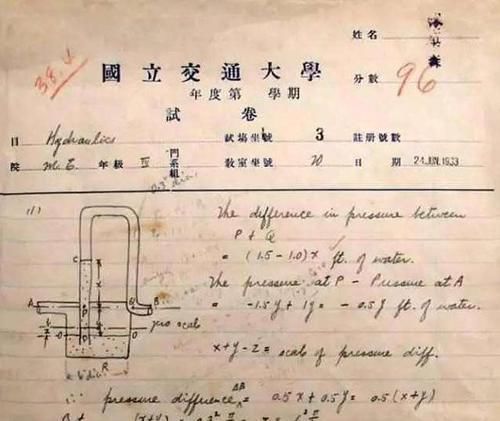 姓名
38.4
國立交通大學
分數 96
年度第 學期
試卷
目 Hydraulics 試場坐號 3 註册號數
院 M.E. 年級 IV 門系組 教室坐號 20 日期 24 JUN.1933
0.3" dia.
(1) The difference in pressure between
P + Q
= (1.5 - 1.0)x ft. of water.
The pressure at P - Pressure at A
= -1.5y + 1y = -0.5y ft. of water.
x+y-z = scale of pressure diff.
C
x
A
P
B
y
zero scale
O
O
R
∴ pressure difference AB = 0.5x + 0.5y = 0.5(x+y)